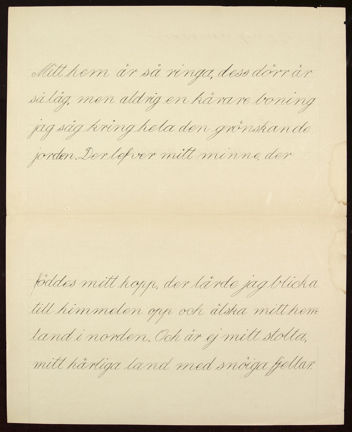 Mitt hem är så ringa, dess dörr är
så låg, men aldrig en kärare boning
jag såg kring hela den grönskande
jorden. Der lefver mitt minne, der
föddes mitt hopp, der lärde jag blicka
till himmelen opp och älska mitt hem
land i norden. Och är ej mitt stolta,
mitt härliga land med snöiga fjellar.